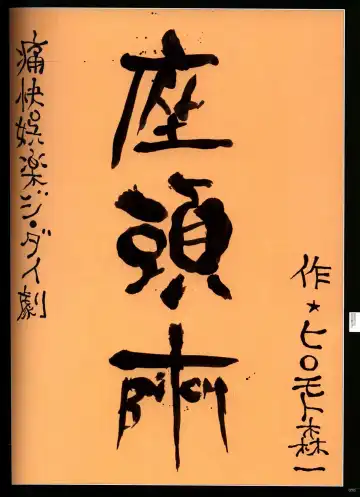 作★ヒロモト森一
座頭市
BiTCH
痛快娯楽ジ・ダイ劇